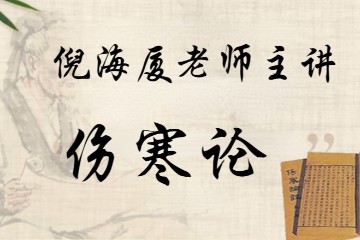 倪海厦老师主讲
伤寒论